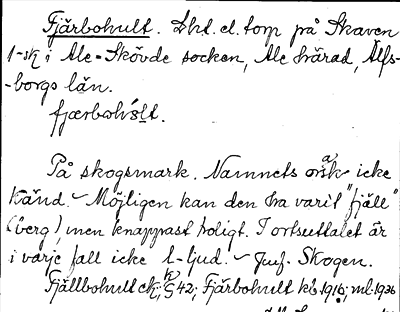 Fjärbohult. Lht. el. torp på Skaven
1-sk i Ale-Skövde socken, Ale härad, Älfs-
-borgs län.
På skogsmark. Namnets orsak icke
känd. - Möjligen kan den ha varit "fjäll"
(berg) men knappast troligt. I ortsuttalet är
i varje fall icke l-ljud. - Jmf. Skogen.
Fjällbohult ek; 42; Fjärbohult kb 1916; ml. 1936